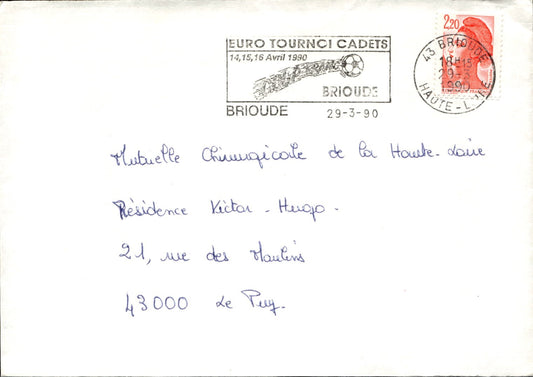 2,20
EURO TOURNOI CADETS
14,15,16 Avril 1990
BRIOUDE
BRIOUDE 29-3-90
43 BRIOUDE
18H15
29-3
1990
HAUTE-LOIRE
Mutuelle Chirurgicale de la Haute-Loire
Résidence Victor-Hugo-
21, rue des Moulins
43000 Le Puy-